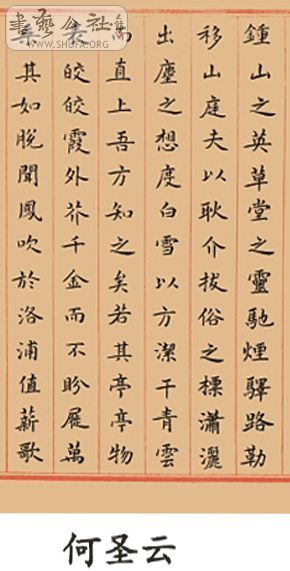 書藝公社
WWW.SHUFA.ORG
鍾山之英草堂之靈馳煙驛路勒
移山庭夫以耿介拔俗之標瀟灑
出塵之想度白雪以方潔干青雲
而直上吾方知之矣若其亭亭物
表皎皎霞外芥千金而不盼屣萬
乘其如脫聞鳳吹於洛浦值薪歌
何圣云